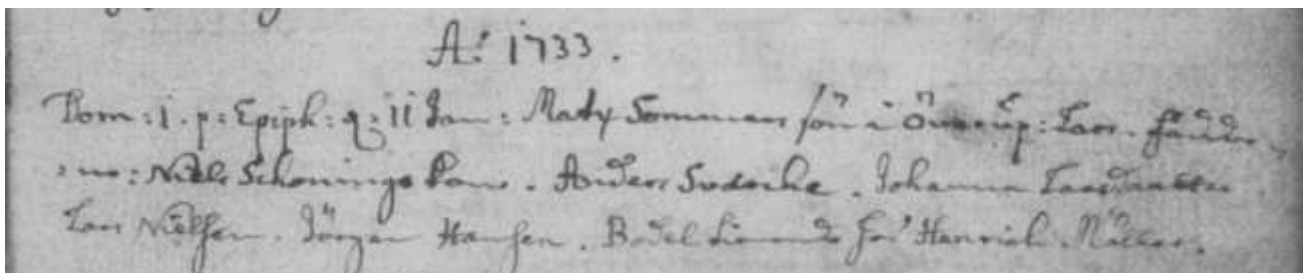 Ao 1733.
Dom: 1. p: Epiph: q: 11 Jan: Mads Sommers søn i : Lars. fadder
: Niels Schonings Kone. Anders . Johanna Larsdaatter
Lars Nielsen. Jörgen Hansen. Bodel Henrich Möller.